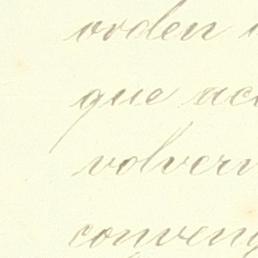 orden
que
volver
conven